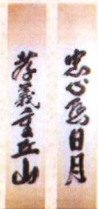 忠心日月
孝義重丘山